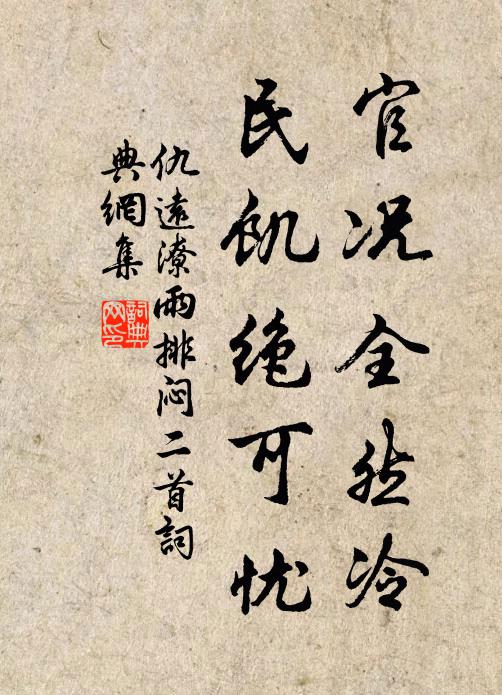 官况全然冷
民饥绝可忧
仇遠潦雨排闷二首詞
典網集
詞典
网印